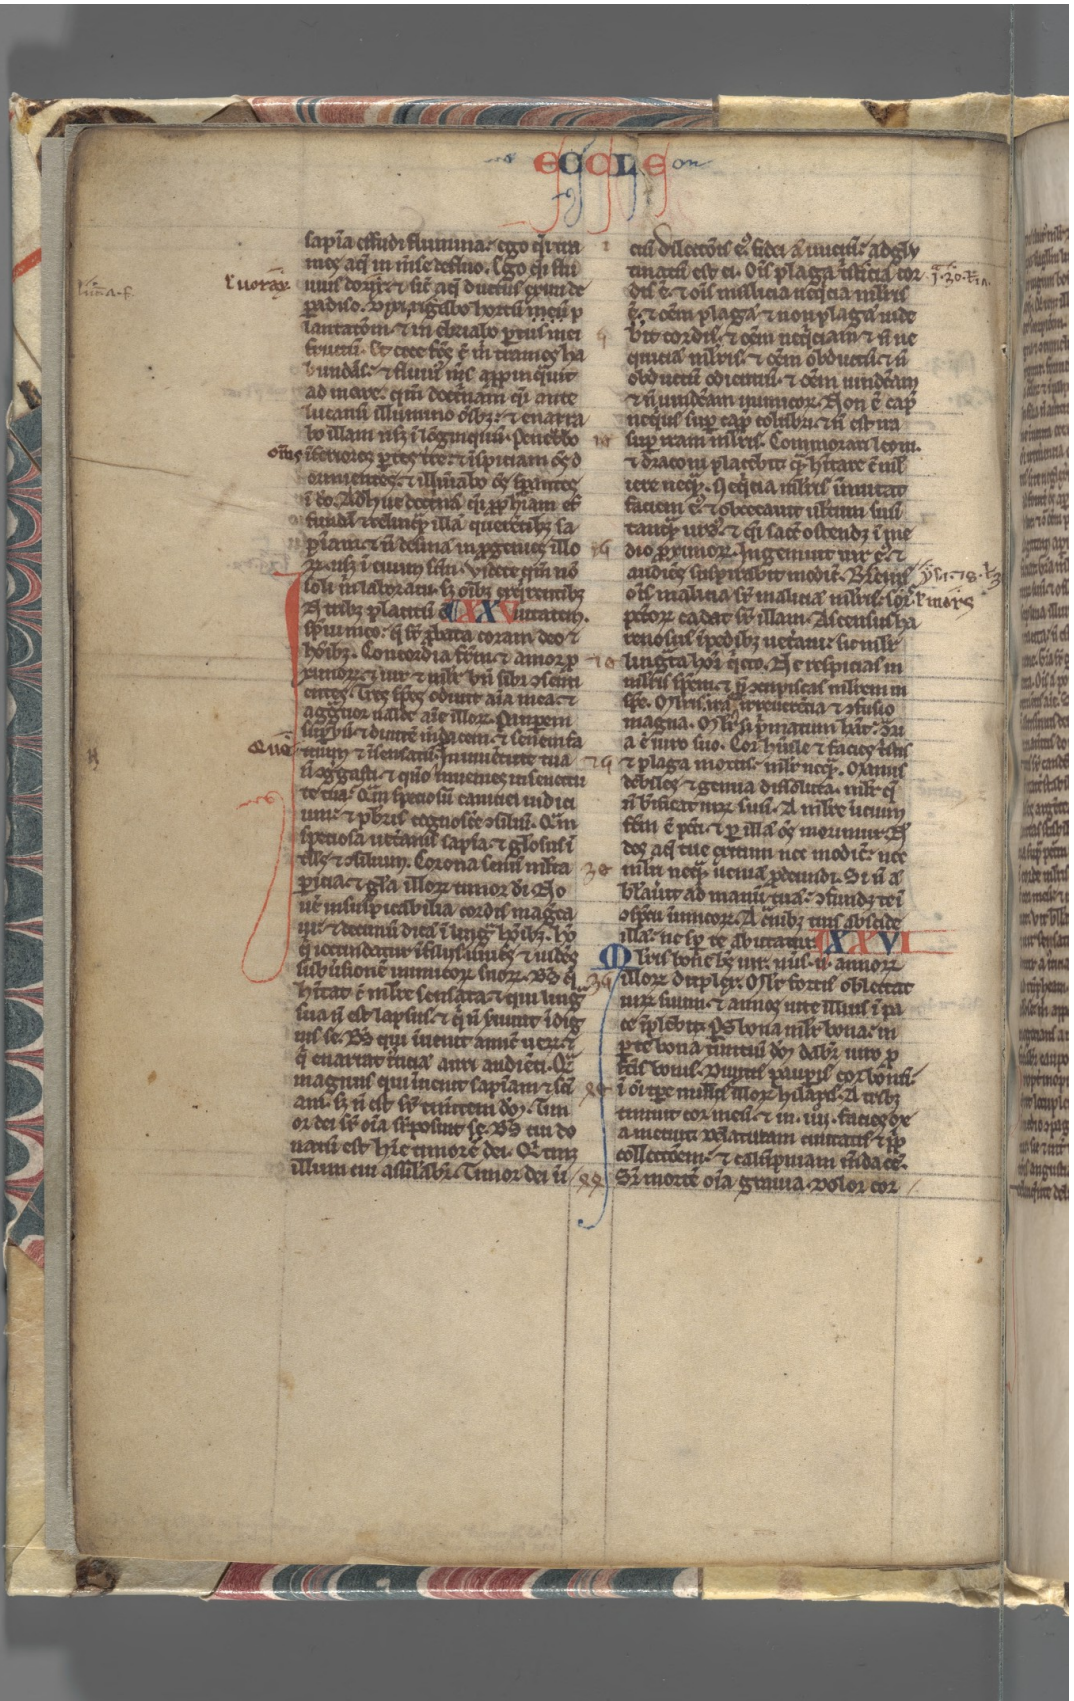 ECCLE
sapīa effudi flumina. ego q̄i tra
mes aq̄ in mēse defluo. Ego q̄i flu
uius dorix. ⁊ sic̄ aq̄ ductus exiui de
padiso. Dixi rigabo hortū meū p
lantatōm. ⁊ inebriabo p̄tus mei
fructū. Et ecce fc̄s ē m̄ trames ha
bundās. ⁊ fluuiꝰ m̄s appinq̄uit
ad mare. qm̄ doct̄nam q̄i ante
lucanū illumino oībꝫ. ⁊ enarra
bo illam usꝫ ī lōginquū. Penet̄bo
īferiores ptes t̄re. ⁊ īspiciam oēs d
ormientes. ⁊ illuīabo oēs sp̄antes
ī dō. Adhuc doct̄nā q̄i ꝓph̄iam ef
fundā ⁊ relinq̄ illā querētibꝫ sa
pīam. ⁊ ñ desinā in ꝓgenies illo
ꝝ. usꝫ ī euum sc̄m. Videte qm̄ nō
soli m̄ laboraui. sꝫ oībꝫ exq̄rentibꝫ
ueritatem.
In tribꝫ placitū ē XXV
sp̄ui meo. q̄ s̄t ꝓbata coram deo ⁊
hoībꝫ. Concordia fr̄m. ⁊ amor p
ximoꝝ. ⁊ uir ⁊ mlr̄ bn̄ sibi ɔsenti
entes. Tres sp̄es odiuit aīa mea. ⁊
aggͣuor ualde aīe illoꝝ. Paupem
suꝑbū. ⁊ diuitē mēdacem. ⁊ senem fa
tuum ⁊ īsensatū. In iuuētute tua
ñ ɔgͣgasti. ⁊ quō inuenies in senectu
te tua. Qͣm speciosū caniciei iudici
um. ⁊ p̄bris cognosc̄e ɔsiliū. Qͣm
speciosa uet̄anis sapīa. ⁊ gl̄osus ī
tell̄s ⁊ ɔsilium. Corona senū multa
ꝑicia. ⁊ gl̄a illoꝝ timor dī. No
uē insuspicabilia cordis magͣca
ui. ⁊ decimū dicā ī lingͣ hoībꝫ. hō
q̄ iocundatur ī filiis. uiuēs ⁊ uidēs
subūsionē inimicoꝝ suoꝝ. Bs̄ q̄
hītat c̄ mlr̄e sensata. ⁊ qui lingͣ
sua ñ est lapsus. ⁊ q̄ ñ ẜuiuit īdig
nis se. Bs̄ qui īuenit amicū ueꝝ. ⁊
q̄ enarrat iusticiā auri audiēti. Qͣm
magnus qui īuenit sapīam ⁊ sci
am. sꝫ ñ est sr̄ timētem dn̄m. Tim
or dei sr̄ oīa suꝑposuit se. Bs̄ cui do
natū est hr̄e timorē dei. Qͥ tenꝫ
illum cui assil̄abr̄. Timor dei in
ciū dilectōis eꝰ. fidei aū iniciū. adglu
tinatū est ei. Oīs plaga tristicia cor
dis ē. ⁊ oīs malicia neq̄cia mlr̄is
ē. ⁊ oēm plagā ⁊ non plagā uide
bit cordis. ⁊ oēm neq̄ciam ⁊ ñ ne
quiciā mlr̄is. ⁊ oēm obductū ⁊ ñ
obductū odientiū. ⁊ oēm uindc̄am
⁊ ñ uindc̄am inimicoꝝ. Non ē cap̄
neq̄us suꝑ cap̄ colubri. ⁊ ñ est ira
suꝑ iram mlr̄is. Commorari leoni.
⁊ draconi placebit. qͣ hītare c̄ mlī
iere neq̄. Neq̄cia mlr̄is īmutat
faciem eꝰ. ⁊ obcecauit uultum suū
tanq̄ ursꝰ. ⁊ q̄i sacc̄ ostendꝫ ī me
dio ꝓximoꝝ. Ingemuit uir eꝰ. ⁊
audiēs suspirabit modic̄. Breuis
oīs malicia sr̄ maliciā mlr̄is. sors
pec̄toꝝ cadat sr̄ illam. Ascensus ha
renosus ī pedibꝫ uet̄ani. sic mlr̄
lingͣta hōi q̄eto. Ne respicias in
mlr̄is spēm. ⁊ ñ ɔcupiscas mlr̄em in
spē. Mlr̄is ira. irreuerēcia ⁊ ɔfusio
magna. Mlr̄ si p̄matum hēt. ɔtrͣ
a ē uiro suo. Cor hūile ⁊ facies tristis
⁊ plaga mortis. mlr̄ neq̄. Manus
debiles. ⁊ genua dissoluta. mlr̄ q̄
ñ bīficat uiꝝ suū. A mlr̄e īcium
fc̄m ē pc̄ti. ⁊ ꝑ illā oēs morimur. Ñ
des aq̄ tue exitum nec modic̄. nec
mlr̄i neq̄ ueniā ꝓdeundi. Si ñ ā
bl̄auīt ad manū tuā. ɔfundꝫ te ī
ɔsp̄cu īimicoꝝ. A c̄nibꝫ tuis abscide
illā. ne sꝑ te abutatur. XXVI
Mlr̄is bone bs̄ uir. nūs .n̄. annoꝝ
illoꝝ duplex. Mlr̄ fortis oblectat
uiꝝ suum. ⁊ annos uite illius ī pa
ce īplebit. Ps̄ bona mlr̄ bona. in
ꝑte bona timentiū dn̄m dabr̄ uiro ꝓ
fc̄is bonis. Diuitis ⁊ paupis cor bonū.
ī oī tp̄e uultus illoꝝ hylaris. A tribꝫ
timuit cor meū. ⁊ in .iiij. facies me
a metuit. Delaturam ciuitatis. ⁊ ip̄
collectōem. ⁊ calūpniam mēdacē.
Sr̄ mortē oīa gͣuia. Dolor cor